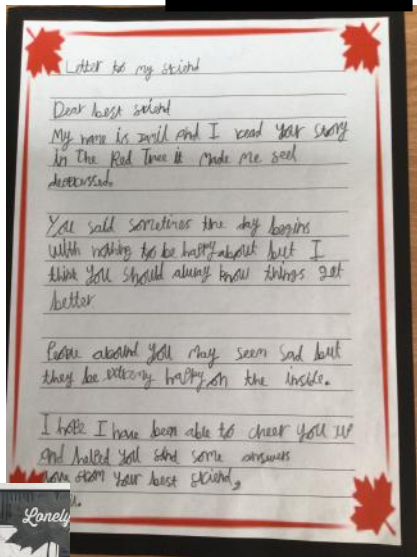 Letter to my friend
Dear best friend
My name is and I read your story
in The Red Tree it made me feel
depressed.
You said sometimes the day begins
with nothing to be happy about but I
think you should alway know things get
better
People around you may seem sad but
they be extremy happy on the inside.
I hope I have been able to cheer you up
and helped you find some answers
love from your best friend,
Lonely